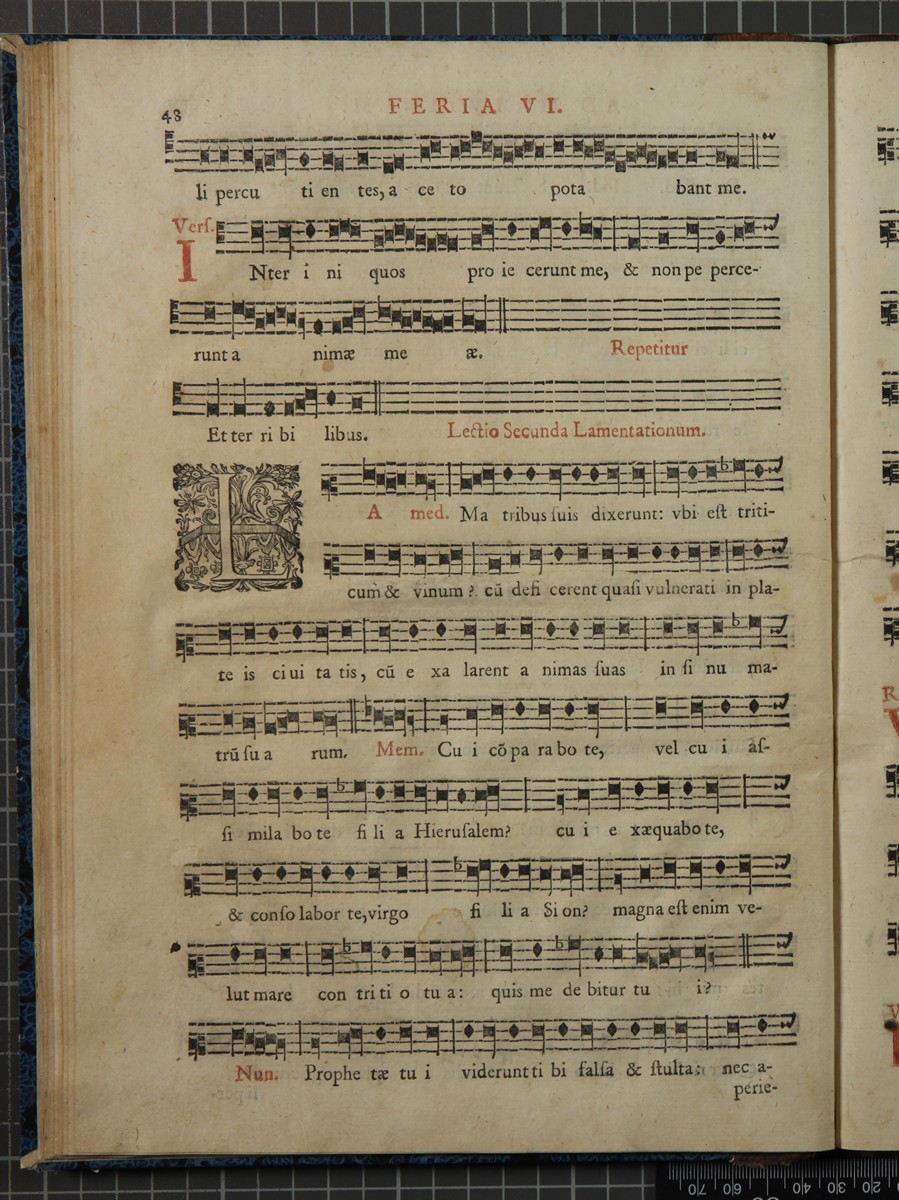 48
FERIA VI.
li percu ti en tes, a ce to pota bant me.
Verſ.
I
Nter i ni quos pro ie cerunt me, & non pe perce-
runt a nimæ me æ. Repetitur
Et ter ri bi libus. Lectio Secunda Lamentationum.
L
A med. Ma tribus ſuis dixerunt: vbi eſt triti-
cum & vinum? cū defi cerent quaſi vulnerati in pla-
te is ciui ta tis, cū e xa larent a nimas ſuas in ſi nu ma-
trū ſu a rum. Mem. Cu i cōpa ra bo te, vel cu i aſ-
ſi mila bo te fi li a Hieruſalem? cu i e xæquabo te,
& conſo labor te, virgo fi li a Si on? magna eſt enim ve-
lut mare con tri ti o tu a: quis me de bitur tu i?
Nun. Prophe tæ tu i viderunt ti bi falſa & ſtulta: nec a-
perie-
70 60 50 40 30 20